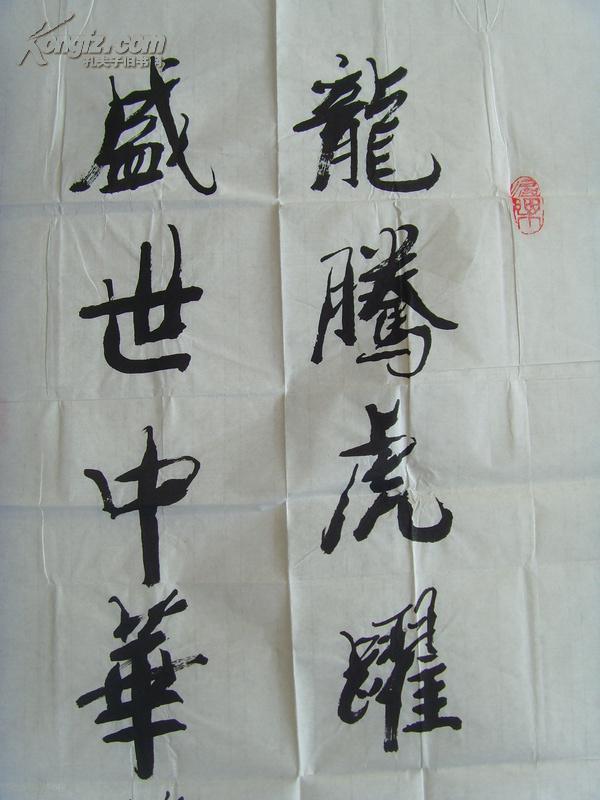 龍騰虎躍
盛世中華
Kongfz.com
孔夫子旧书网